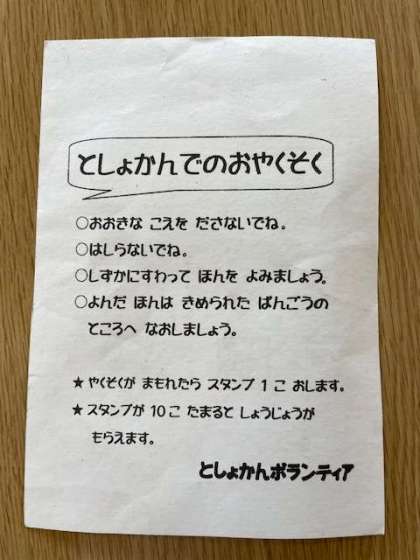 としょかんでのおやくそく
○おおきな こえを ださないでね。
○はしらないでね。
○しずかにすわって ほんを よみましょう。
○よんだ ほんは きめられた ばんごうの
ところへ なおしましょう。
★ やくそくが まもれたら スタンプ 1 こ おします。
★ スタンプが 10 こ たまると しょうじょうが
もらえます。
としょかんボランティア